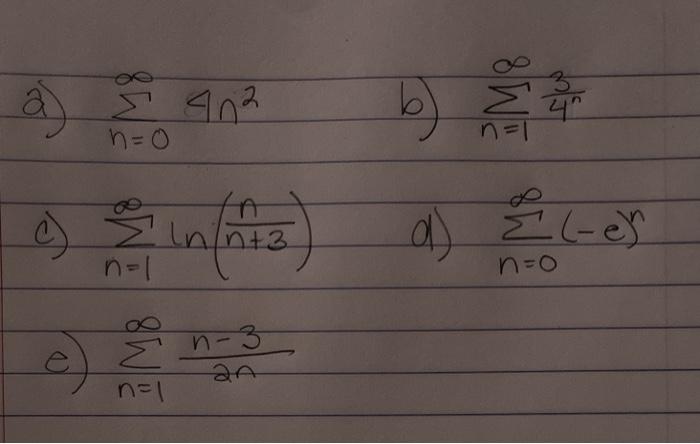 a) ∞ Σ n=0 4n² b) ∞ Σ n=1 3/4ⁿ
c) ∞ Σ n=1 ln(n/(n+3)) d) ∞ Σ n=0 (-e)ⁿ
e) ∞ Σ n=1 (n-3)/2n